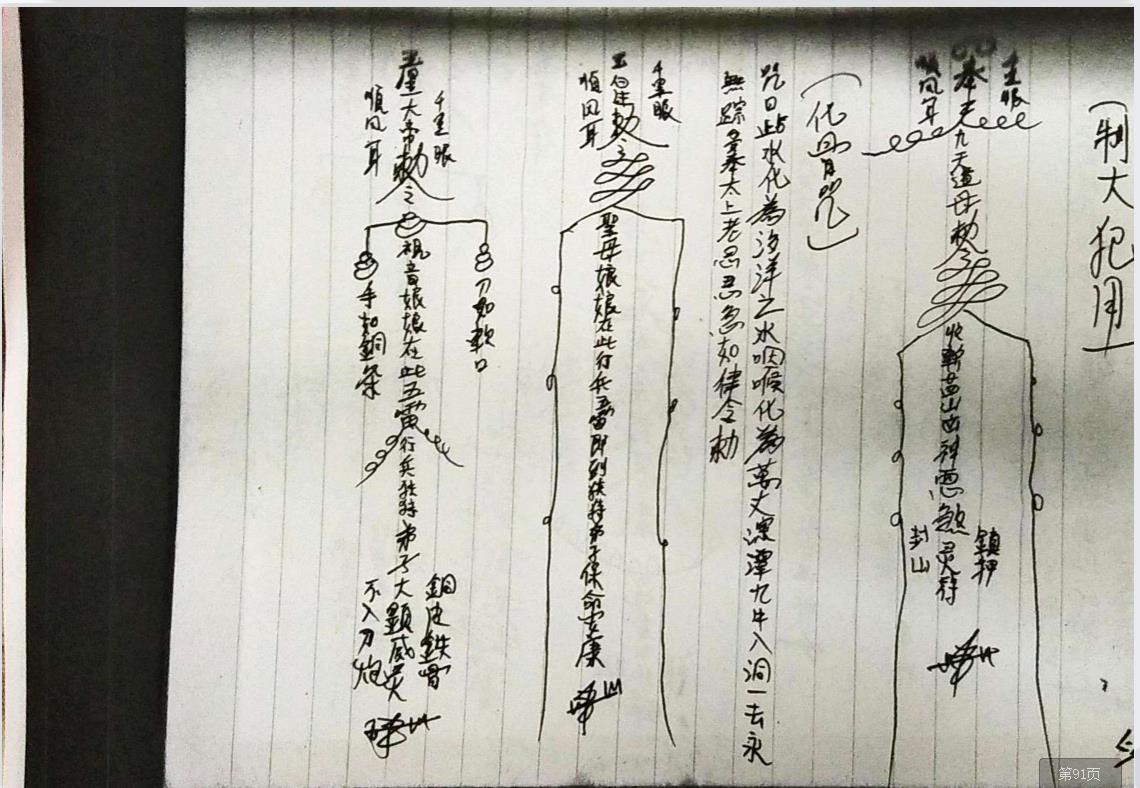 (制大犯用)
千里眼
奉
順風耳
九天道母敕令
收斬茔山凶神惡煞灵符
鎮押
封山
(化骨咒)
咒曰此水化為汐洋之水咽喉化為萬丈深潭九牛入洞一去永
無踪奉太上老君急急如律令敕
千里眼
玉皇敕令
順風耳
聖母娘娘在此行兵五雷即到扶持弟子保命安康
千里眼
大帝敕令
順風耳
刀如軟口
娘娘在此五雷行兵扶持弟子大顯威灵
手如銅条
銅皮鉄骨
不入刀炮
第91页